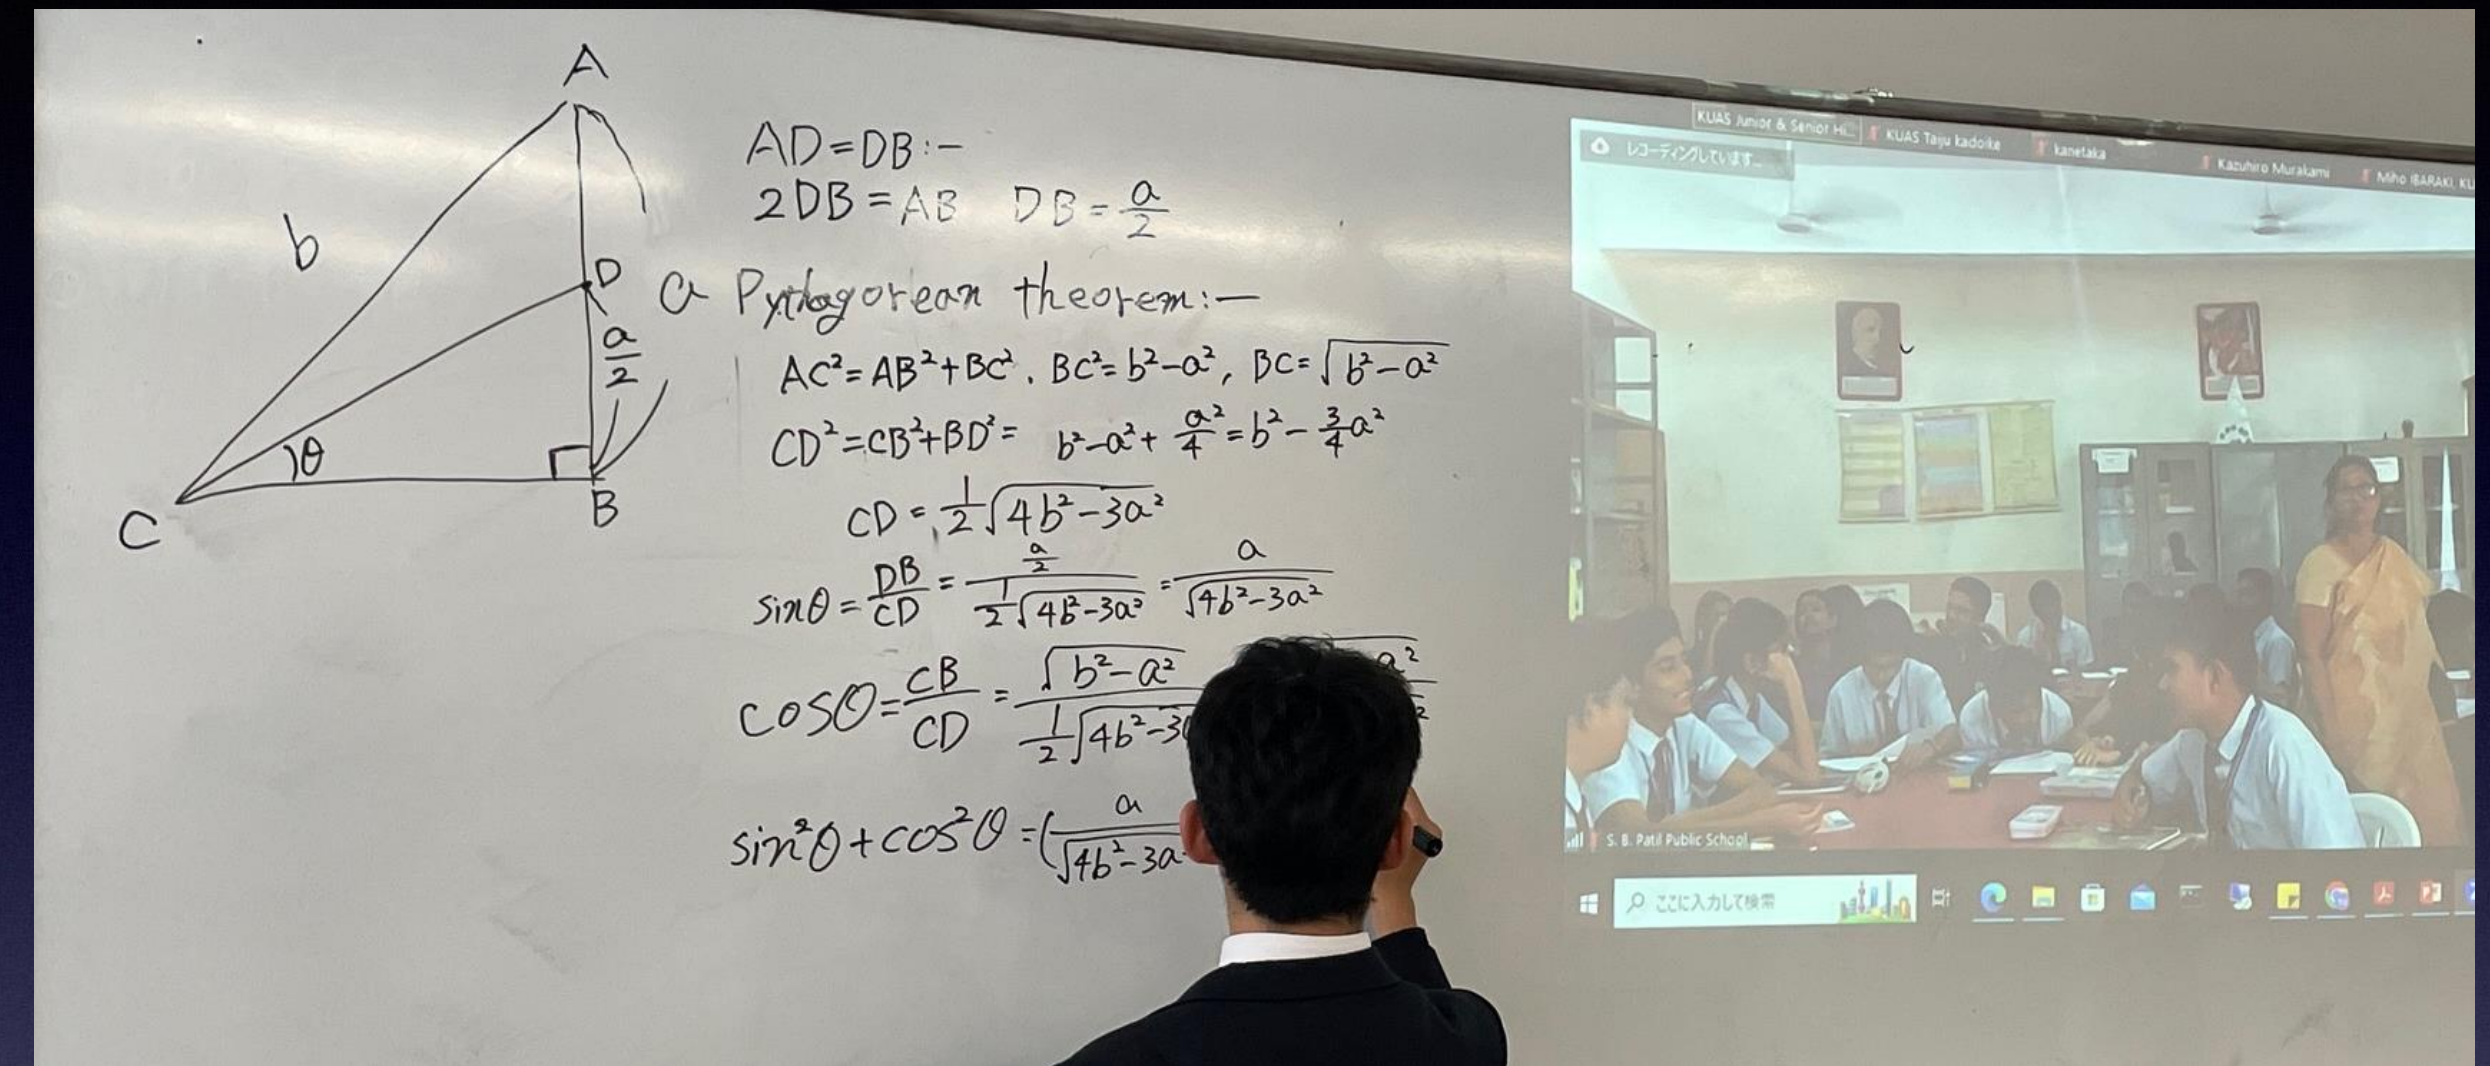 A
b
D
a
a/2
θ
C
B
AD=DB:—
2DB=AB DB=a/2
Pythagorean theorem:—
AC²=AB²+BC², BC²=b²-a², BC=√(b²-a²)
CD²=CB²+BD²= b²-a²+a²/4=b²-3/4a²
CD=1/2√(4b²-3a²)
sinθ=DB/CD=(a/2)/(1/2√(4b²-3a²))=a/√(4b²-3a²)
cosθ=CB/CD=√(b²-a²)/(1/2√(4b²-3
sin²θ+cos²θ=(a/√(4b²-3a
KUAS Junior & Senior Hi...
KUAS Taiju kadoike
kanetaka
Kazuhiro Murakami
Miho IBARAKI, KU
レコーディングしています...
S. B. Patil Public School
ここに入力して検索